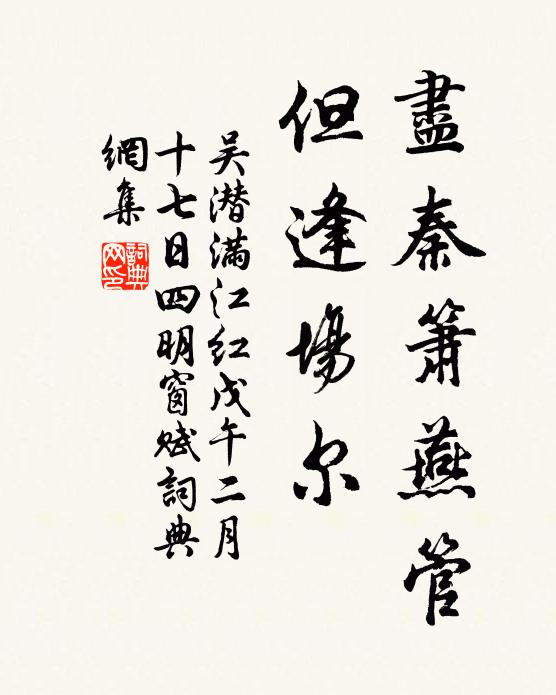 盡秦簫燕管
但逢場尔
吴潜满江红戊午二月
十七日四明窗赋詞典
網集
詞典
网印